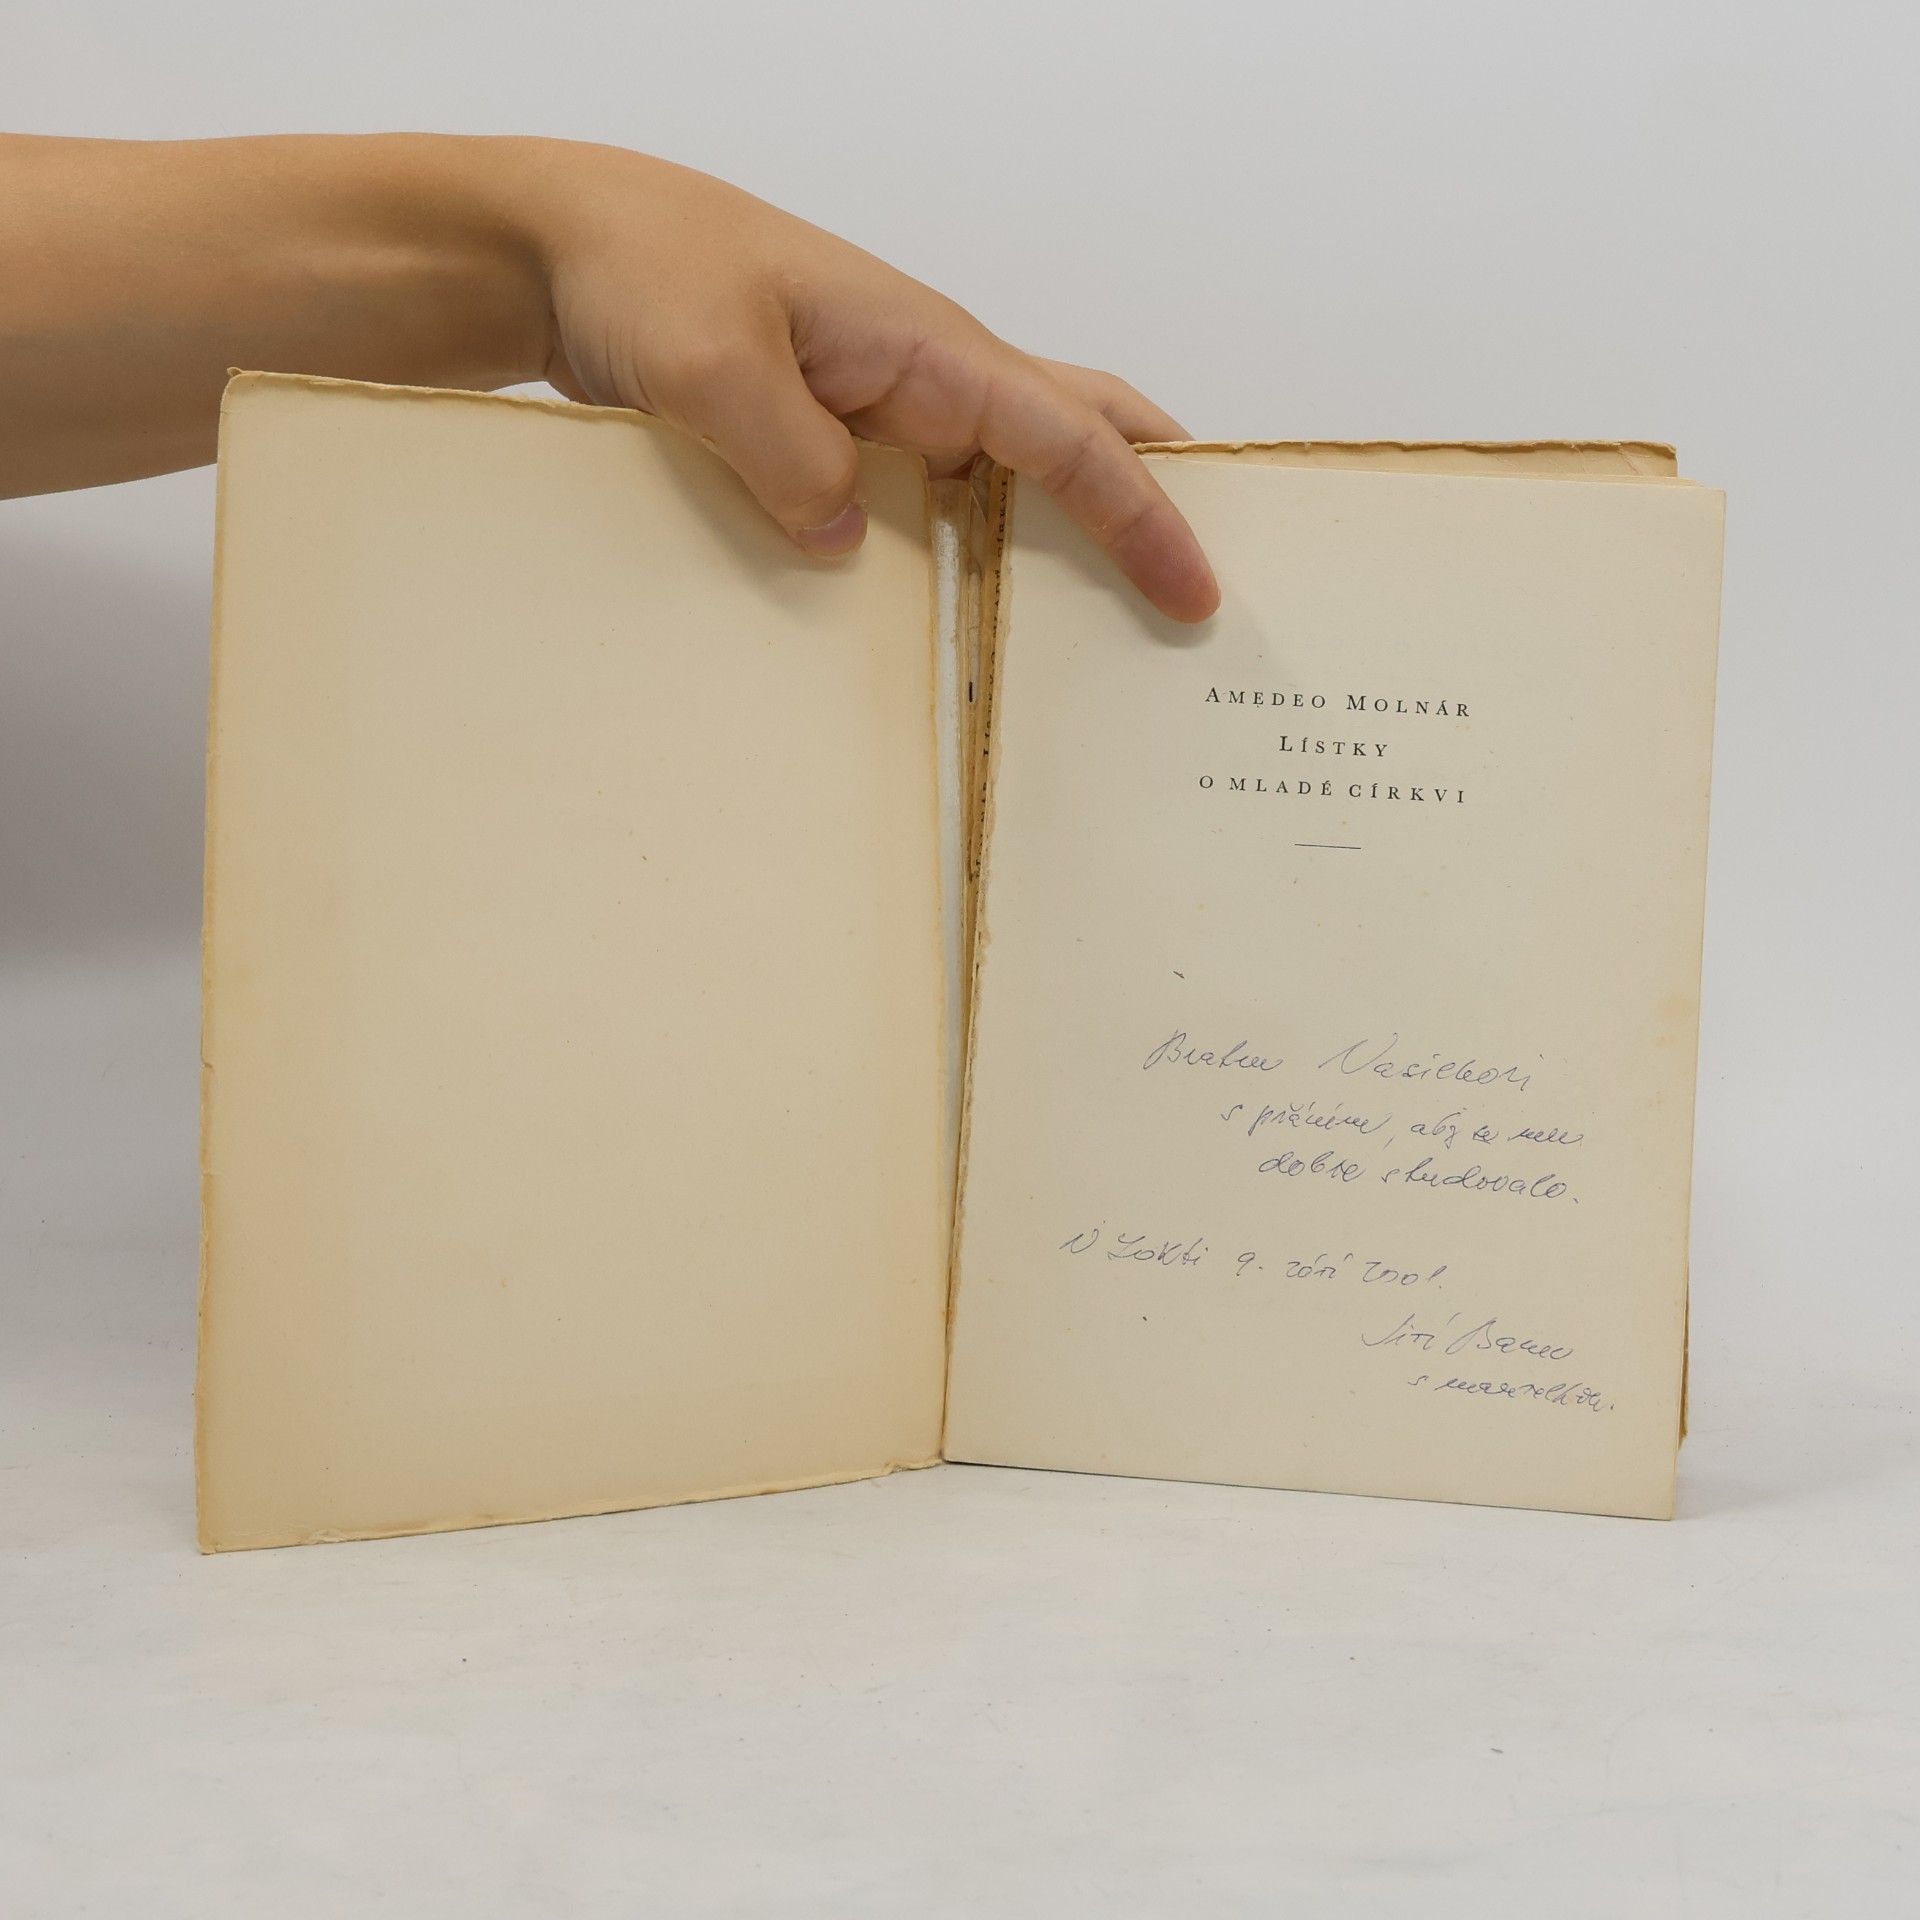 AMEDEO MOLNÁR
LÍSTKY
O MLADÉ CÍRKVI
Bratru
s přáním, aby se mu
dobře studovalo.
V Lokti 9. září 2001.
Jiří
s manželkou.